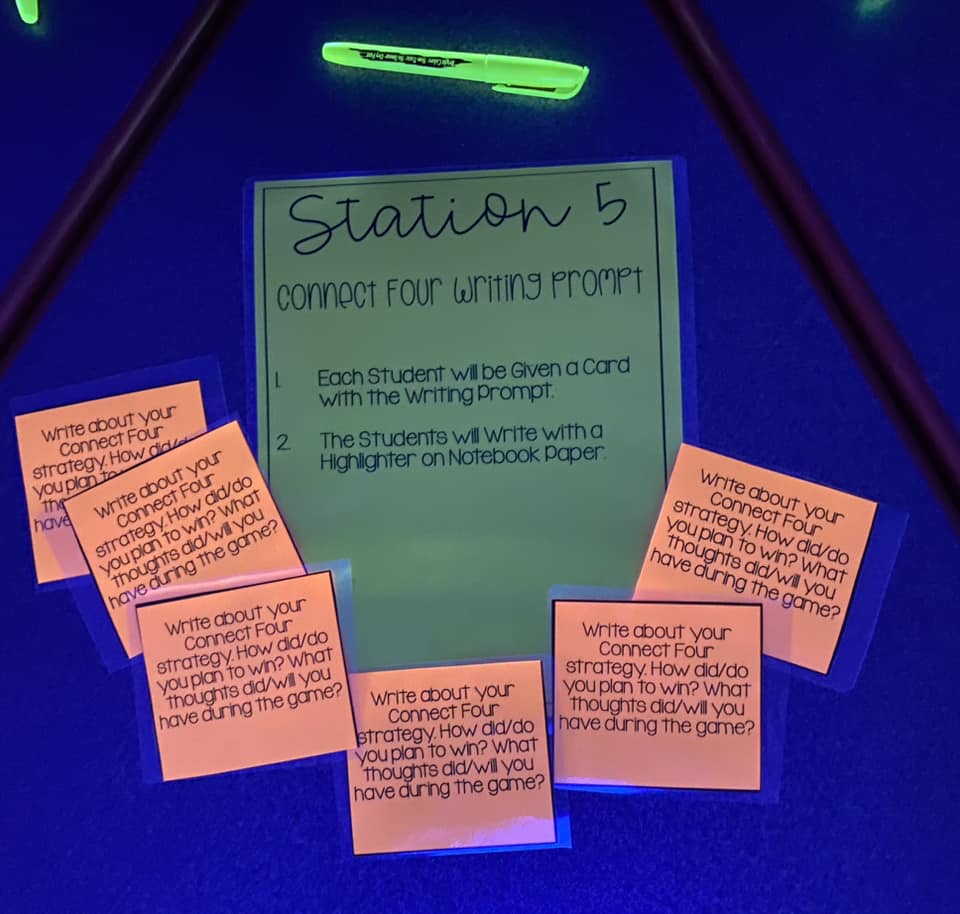 Station 5
Connect Four Writing Prompt
1. Each Student will be Given a Card
with the Writing Prompt.
2. The Students will Write with a
Highlighter on Notebook Paper.
Write about your
Connect Four
strategy. How
you plan to
have
Write about your
Connect Four
strategy. How did/do
you plan to win? What
thoughts did/will you
have during the game?
Write about your
Connect Four
strategy. How did/do
you plan to win? What
thoughts did/will you
have during the game?
Write about your
Connect Four
strategy. How did/do
you plan to win? What
thoughts did/will you
have during the game?
Write about your
Connect Four
strategy. How did/do
you plan to win? What
thoughts did/will you
have during the game?
Write about your
Connect Four
strategy. How did/do
you plan to win? What
thoughts did/will you
have during the game?